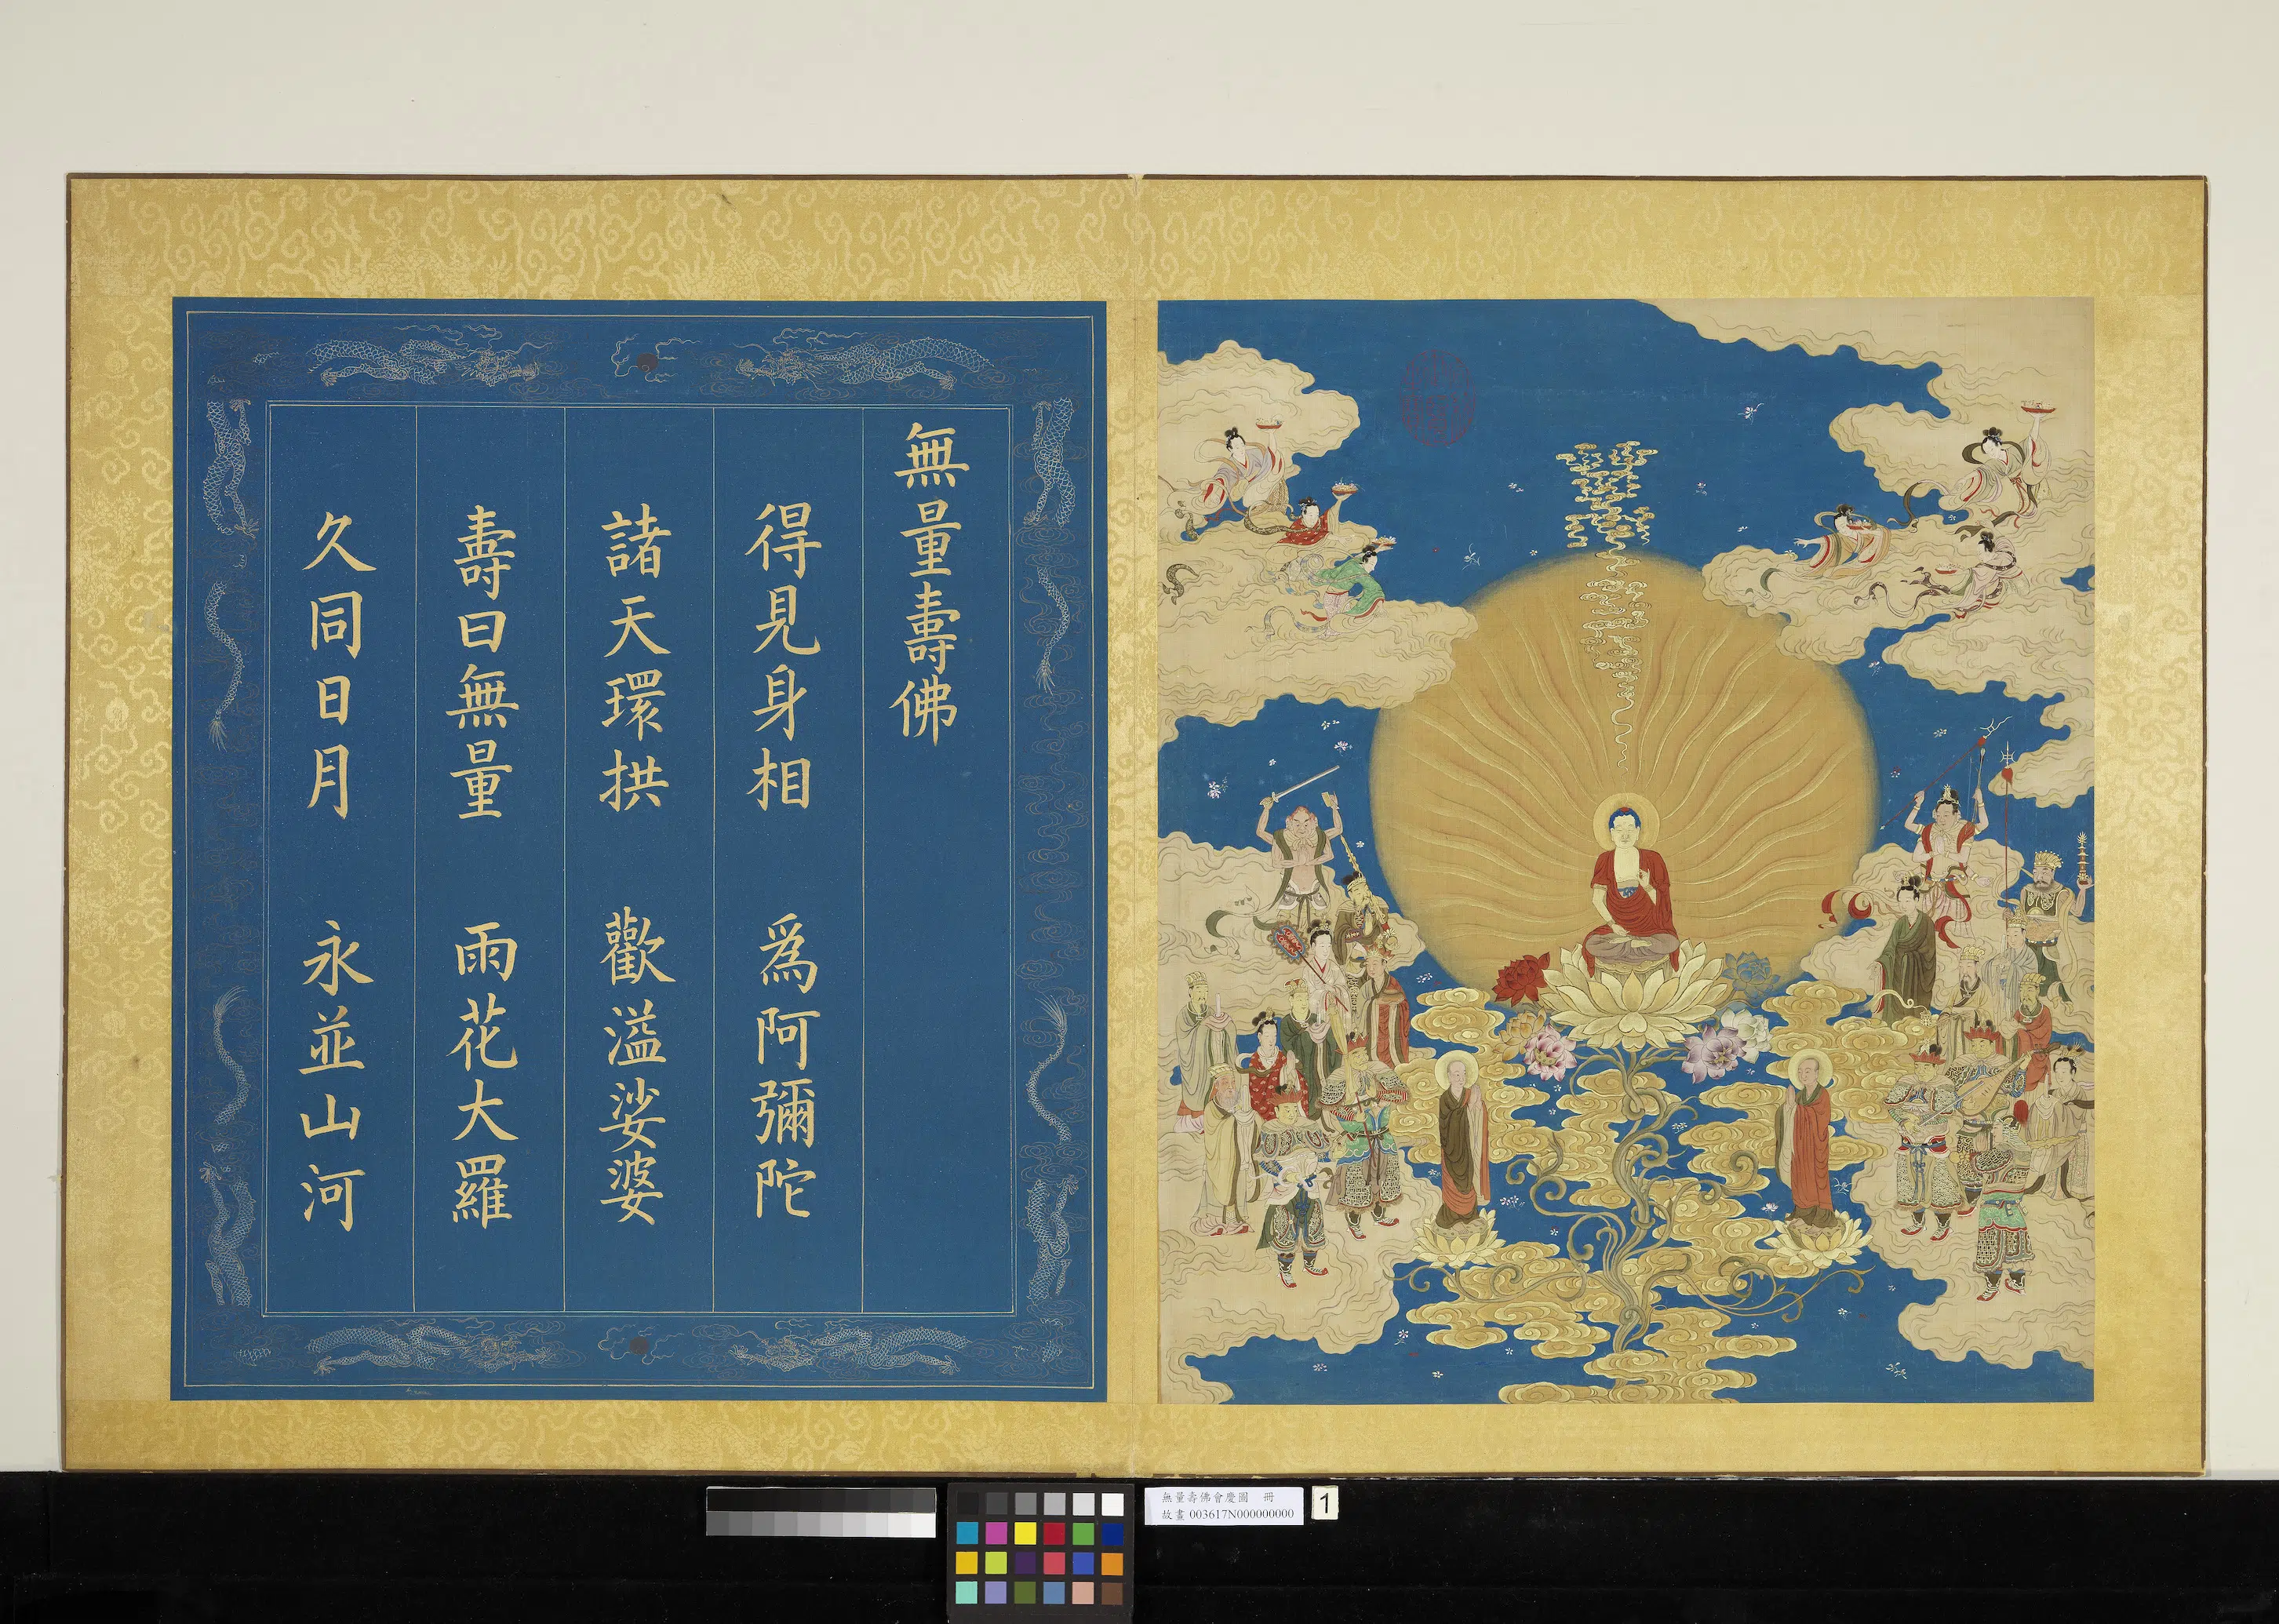 無量壽佛
得見身相 爲阿彌陀
諸天環拱 歡溢娑婆
壽曰無量 雨花大羅
久同日月 永並山河
無量壽佛會慶圖 冊
故畫 003617N000000000
1